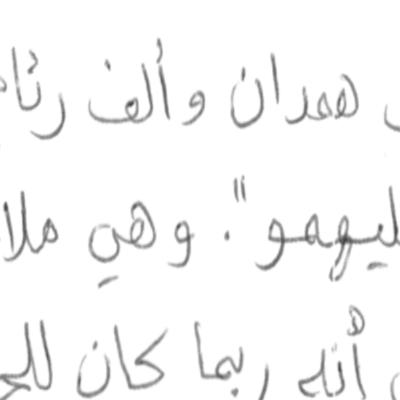 همدان وألف رئا
ليهمو". وهي ملا
أنه ربما كان للح